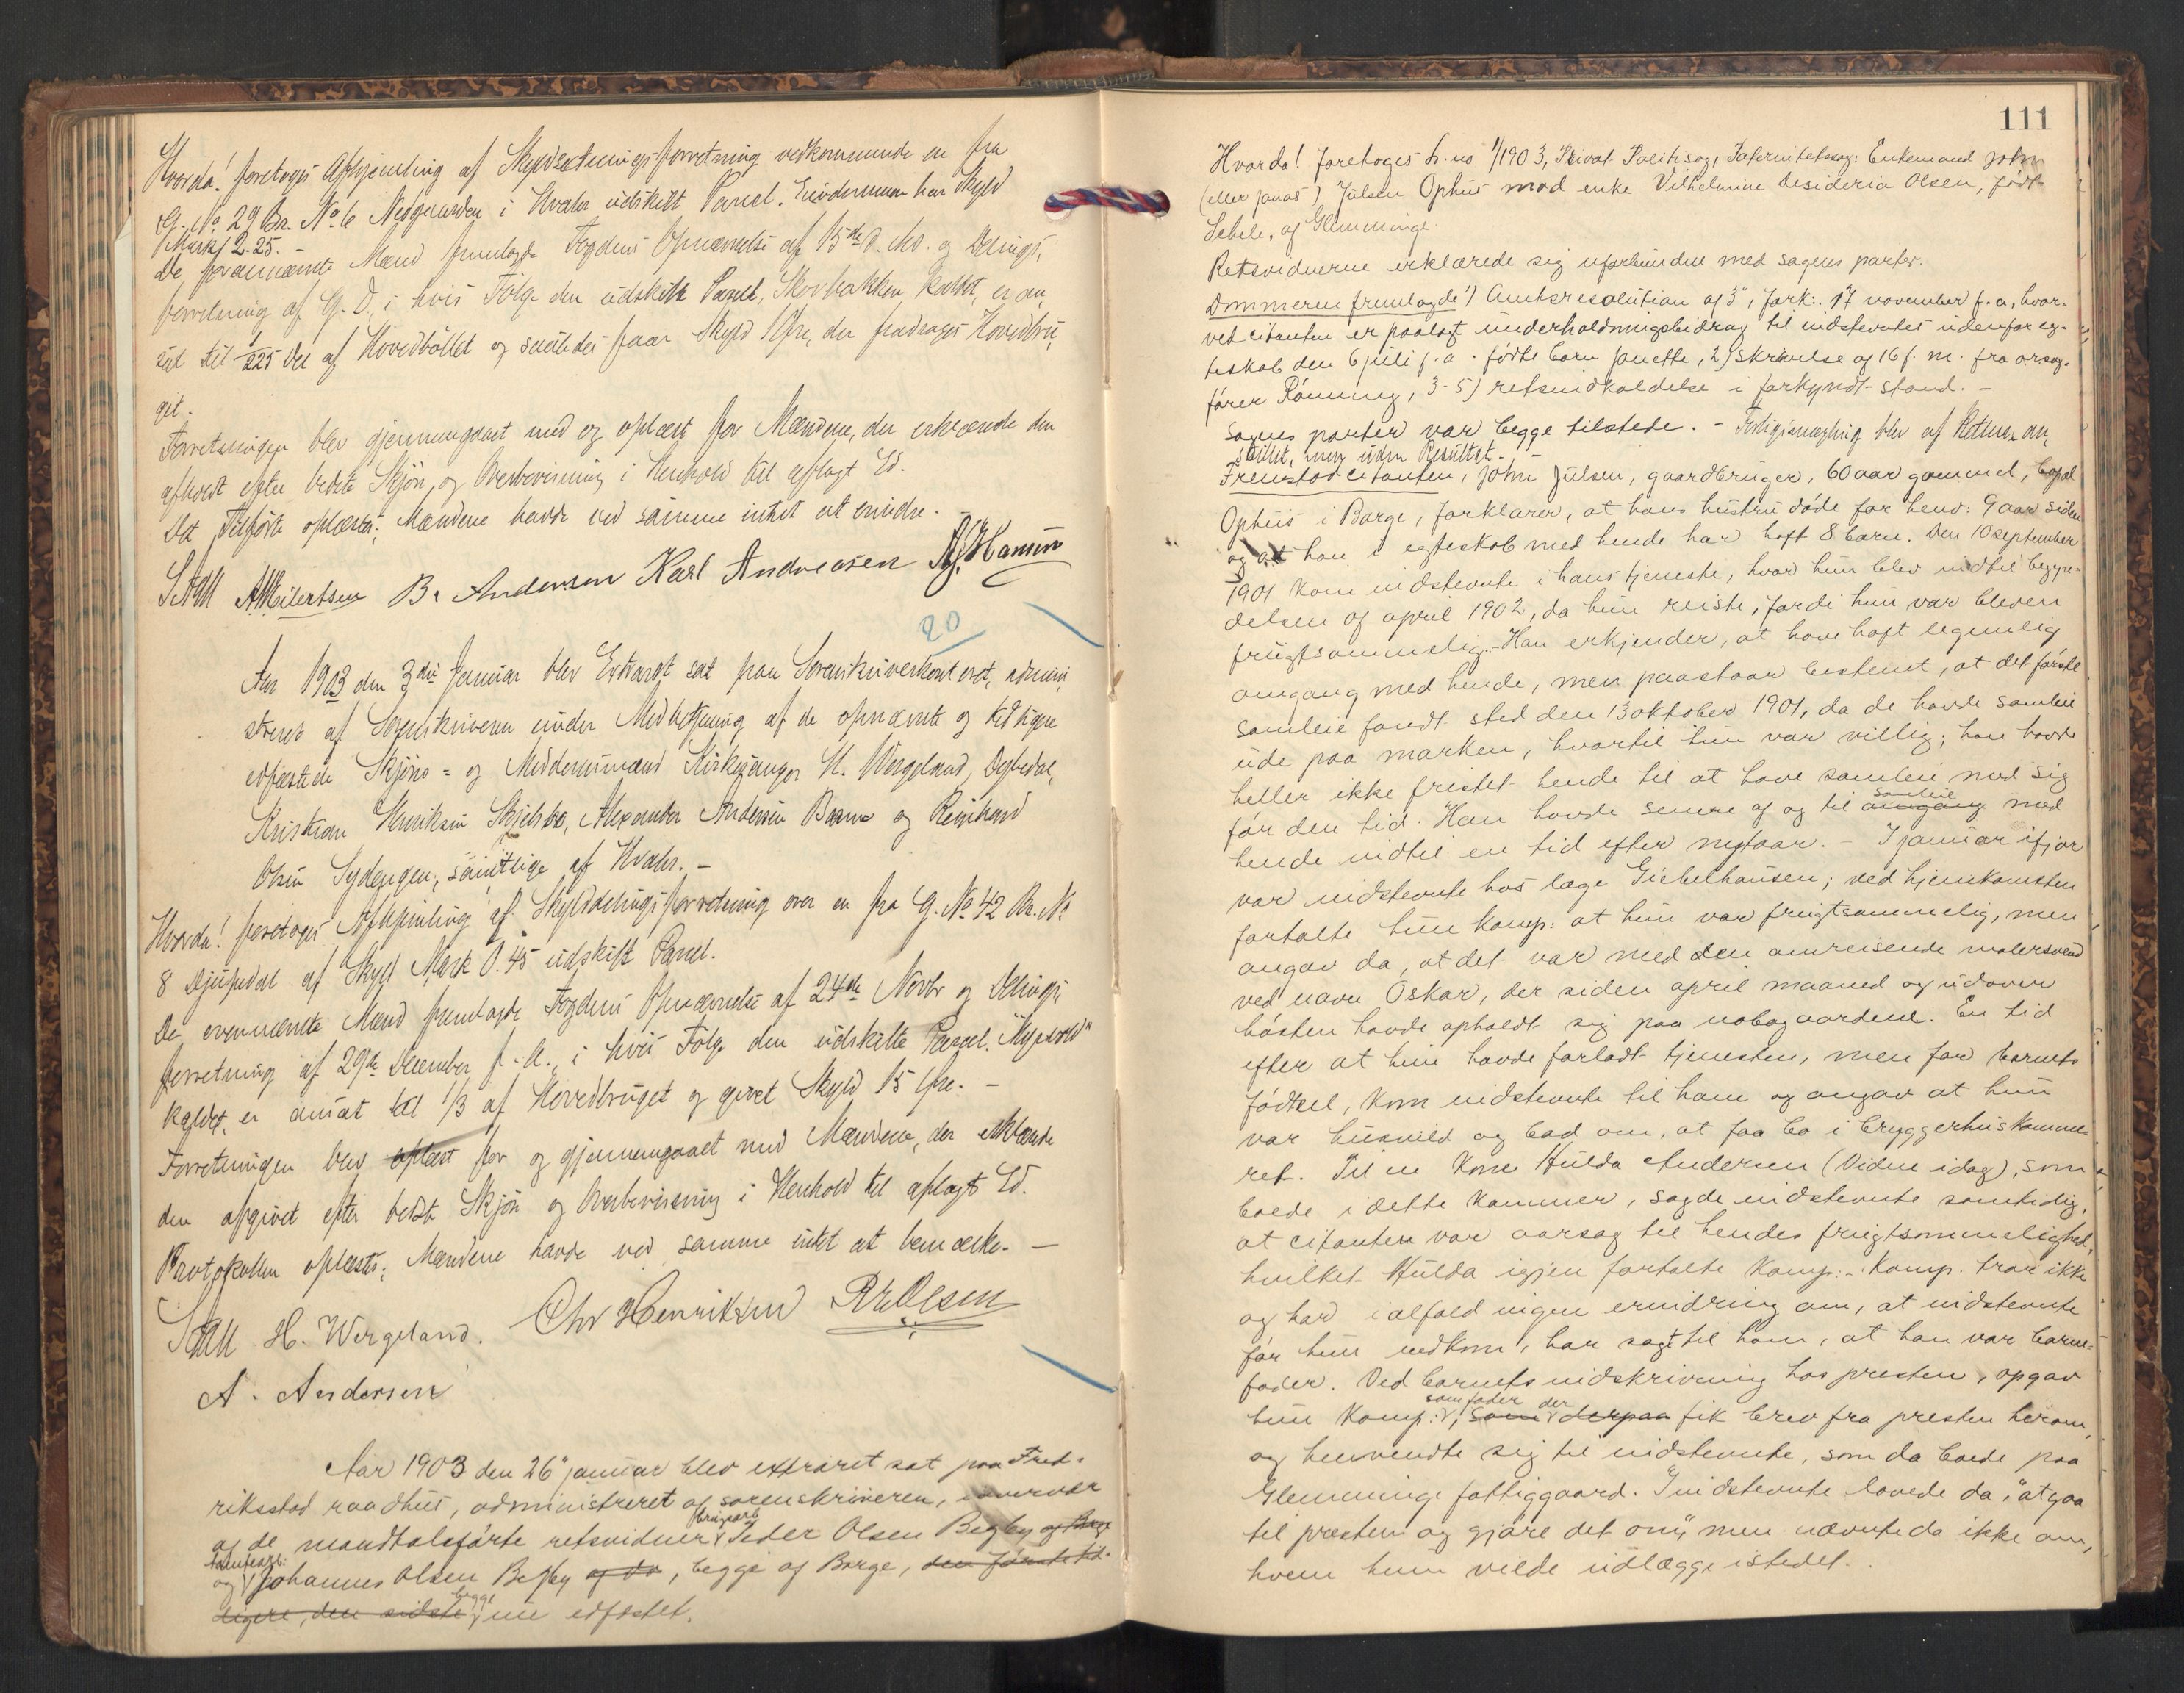 Hvorda! foretoges Afhjemling af Skyldsætningsforretning vedkommende en fra
G. No 29 Br. No 6 Nedgaarden i Hvaler udskilt Parcel. Eiendommen har Skyld
Mark 2.25.
De forannævnte Mænd fremlagde Fogdens Opnævnelse af 15de d. Md. og Delings,
forretning af G. D., i hvis Følge den udskilte Parcel, Skovbakken kaldet, er an,
sat til 1/225 Del af Hovedbøllet og saaledes faar Skyld 1 Øre, der fradrages Hovedbru,
get.
Forretningen blev gjennemgaaet med og oplæst for Mændene, der erklærede den
afholdt efter bedste Skjøn og Overbevisning i Henhold til aflagt Ed.
Det Tilførte oplæstes; Mændene havde ved samme intet at erindre.
A Meilertsen B. Andersen Karl Andreasen A. Hansen
20
Aar 1903 den 3die Januar blev Extraret sat paa Sorenskriverkontoret, admini,
streret af Sorenskriveren under Medbetjening af de opnævnte og tidligere
edfæstede Skjøns- og Meddomsmænd Kirkesanger H. Wergeland, Dybedal,
Kristian Henriksen Skjelsbo, Alexander Andersen Barm og Reinhard
Olsen Sydengen, samtlige af Hvaler. -
Hvorda! foretoges Afhjemling af Skylddelingsforretning over en fra G. No 42 Br. No
8 Djupedal af Skyld Mark 0.45 udskilt Parcel.
De ovennævnte Mænd fremlagde Fogdens Opnævnelse af 24de Novbr og Delings,
forretning af 29de December f. A., i hvis Følge den udskilte Parcel "Myrvold"
kaldet, er ansat til 1/3 af Hovedbruget og givet Skyld 15 Øre. -
Forretningen blev oplæst for og gjennemgaaet med Mændene, der erklærede
den afgivet efter bedste Skjøn og Overbevisning i Henhold til aflagt Ed.
Protokollen oplæstes; Mændene havde ved samme intet at bemærke. -
H. Wergeland. Chr Henriksen R Olsen
A. Andersen
Aar 1903 den 26" januar blev extraret sat paa Fred-
riksstad raadhus, administreret af sorenskriveren, i overvær
af de mandtalsførte retsvidner Peder Olsen Begby
og Johannes Olsen Begby og do, begge af Borge, den første tid-
ligere, den sidste begge nu edfæstet.
111
Hvorda! foretoges s. no 1/1903, Privat Politisag, Paternitetssag: Enkemand John
(eller Jonas) Julsen Ophus mod enke Vilhelmine Desideria Olsen, født
Sebele, af Glemminge.
Retsvidnerne erklærede sig uforbundne med sagens parter.
Dommeren fremlagde 1) Amtsresolution af 3", fork: 17 november f. a., hvor-
ved citanten er paalagt underholdningsbidrag til indstevntes udenfor eg-
teskab den 6 juli f. a. fødte barn Janette, 2) skrivelse af 16 f. m. fra orsag-
fører Rønning, 3-5) retsindkaldelse i forkyndt stand. -
Sagens parter var begge tilstede. - Forligsmægling blev af Retten an,
stillet, men uden Resultat. -
Fremstod citanten, John Julsen, gaardbruger, 60 aar gammel, bopæl
Ophus i Borge, forklarer, at hans hustru døde for henv: 9 aar siden
og at han i egteskab med hende har haft 8 barn. Den 10 september
1901 kom indstevnte i hans tjeneste, hvor hun blev indtil begyn-
delsen af april 1902, da hun reiste, fordi hun var bleven
frugtsommelig. - Han erkjender, at have haft legemlig
omgang med hende, men paastaar bestemt, at det første
samleie fandt sted den 13 oktober 1901, da de havde samleie
ude paa marken, hvortil hun var villig; han havde
heller ikke fristet hende til at have samleie med sig
før den tid. Han havde senere af og til omgang samleie med
hende indtil en tid efter nytaar. - I januar ifjor
var indstevnte hos læge Giebelhausen; ved hjemkomsten
fortalte hun komp: at hun var frugtsommelig, men
angav da, at det var med den omreisende malersvend
ved navn Oskar, der siden april maaned og udover
høsten havde opholdt sig paa nabogaardene. En tid
efter at hun havde forladt tjenesten, men før barnets
fødsel, kom indstevnte til ham og angav at hun
var husvild og bad om, at faa bo i bryggerhuskamme-
ret. Til en kone Hulda Andersen (Vidne idag), som
boede i dette kammer, sagde indstevnte samtidig,
at citanten var aarsag til hendes frugtsommelighed,
hvilket Hulda igjen fortalte komp: - Komp. tror ikke
og har ialfald ingen erindring om, at indstevnte
før hun nedkom, har sagt til ham, at han var barne-
fader. Ved barnets indskrivning hos presten, opgav
hun komp: som fader, som der derpaa fik brev fra presten herom,
og henvendte sig til indstevnte, som da boede paa
Glemminge fattiggaard. Indstevnte lovede da, "at gaa
til presten og gjøre det om," men nævnte da ikke om,
hvem hun vilde udlægge istedet.